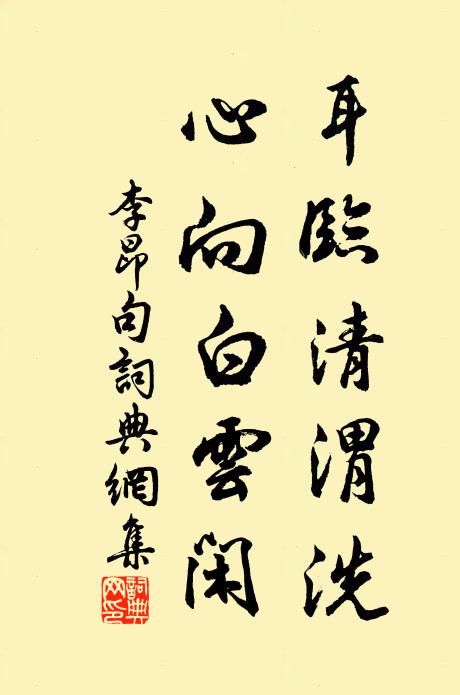 耳臨清渭洗
心向白雲閑
李昂句詞典網集
詞典網印